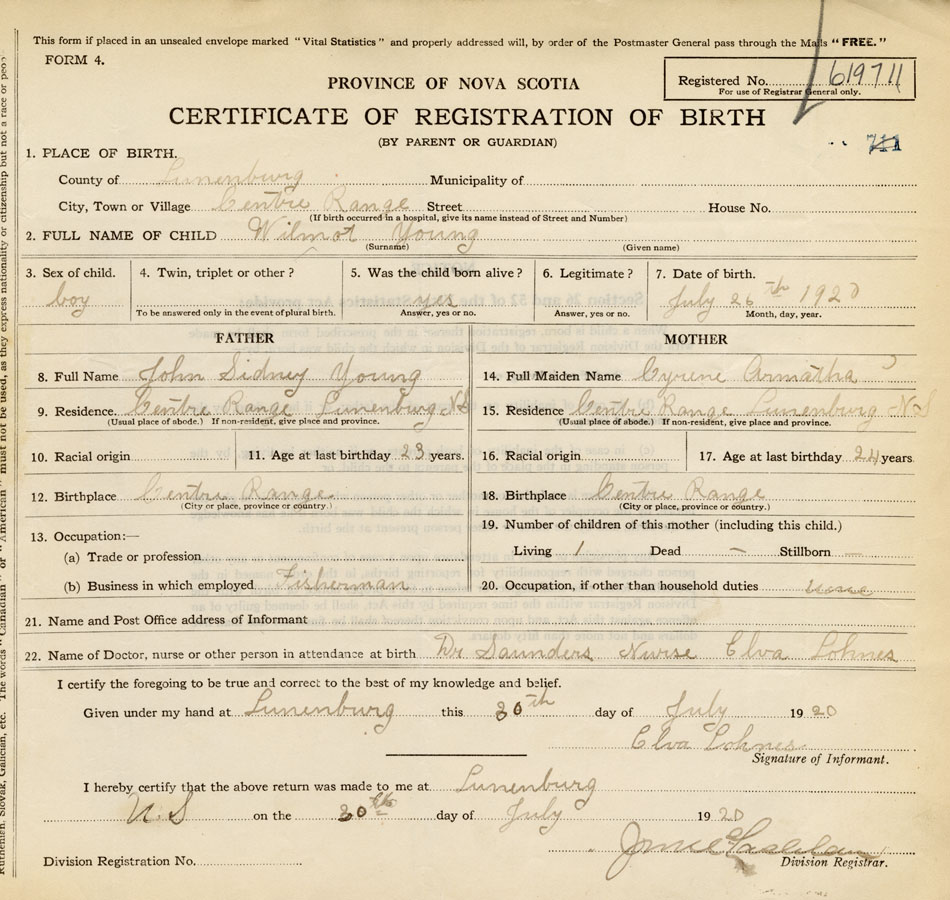 This form if placed in an unsealed envelope marked "Vital Statistics" and properly addressed will, by order of the Postmaster General pass through the Mails "FREE."
FORM 4.
PROVINCE OF NOVA SCOTIA
Registered No. 619711
For use of Registrar General only.
CERTIFICATE OF REGISTRATION OF BIRTH
(BY PARENT OR GUARDIAN)
711
1. PLACE OF BIRTH.
County of Lunenburg Municipality of
City, Town or Village Centre Range Street House No.
(If birth occurred in a hospital, give its name instead of Street and Number)
2. FULL NAME OF CHILD Wilmot Young
(Surname) (Given name)
3. Sex of child. 4. Twin, triplet or other? 5. Was the child born alive? 6. Legitimate? 7. Date of birth.
boy yes July 26th 1920
To be answered only in the event of plural birth. Answer, yes or no. Answer, yes or no. Month, day, year.
FATHER MOTHER
8. Full Name John Sidney Young 14. Full Maiden Name Cyrene Armatha
9. Residence. Centre Range Lunenburg N.S 15. Residence Centre Range Lunenburg N-S
(Usual place of abode.) If non-resident, give place and province. (Usual place of abode.) If non-resident, give place and province.
10. Racial origin 11. Age at last birthday 23 years. 16. Racial origin 17. Age at last birthday 24 years
12. Birthplace Centre Range 18. Birthplace Centre Range
(City or place, province or country.) (City or place, province or country.)
13. Occupation:— 19. Number of children of this mother (including this child.)
(a) Trade or profession Living 1 Dead — Stillborn —
(b) Business in which employed Fisherman 20. Occupation, if other than household duties none
21. Name and Post Office address of Informant
22. Name of Doctor, nurse or other person in attendance at birth Dr Saunders Nurse Elva Lohnes
I certify the foregoing to be true and correct to the best of my knowledge and belief.
Given under my hand at Lunenburg this 30th day of July 1920
Elva Lohnes
Signature of Informant.
I hereby certify that the above return was made to me at Lunenburg
N.S on the 30th day of July 1920
Division Registration No. Division Registrar.